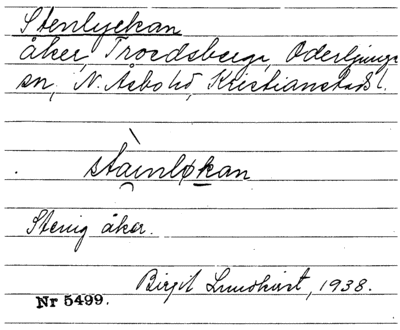 Stenlyckan
åker, Troedsberga, Oderljunga
sn, N. Åsbo hd, Kristianstads l.
stainløkan
Stenig åker.
Birgit Lundkvist, 1938.
Nr 5499.